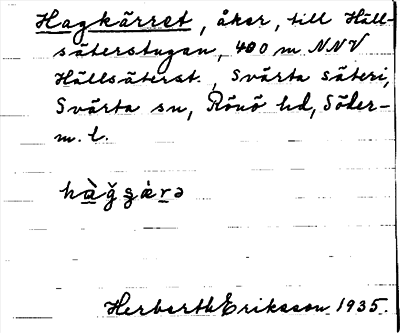 Hagkärret, åker, till Häll-
säterstugan, 400 m NNV
Hällsäterst., Svärta säteri,
Svärta sn, Rönö hd, Söder-
m. l.
hàǧgæ̀rə
Herbert Eriksson 1935.